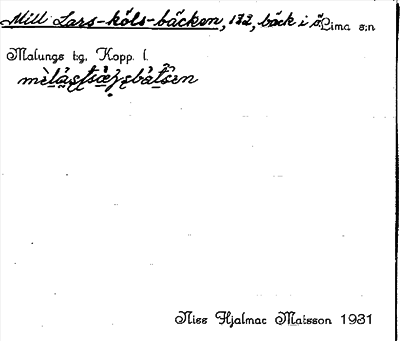 Mill Lars-köls-bäcken, 132, bäck i ö. Lima s:n
Malungs tg. Kopp. l.
Niss Hjalmar Matsson 1931